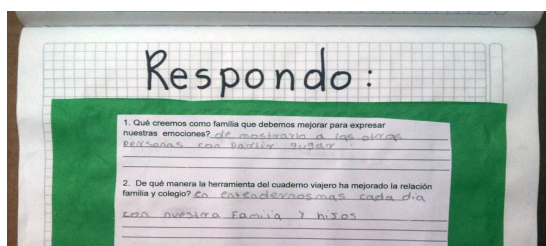 Respondo:
1. Qué creemos como familia que debemos mejorar para expresar
nuestras emociones? de mostrarlo a las otras
personas con partir gugar
2. De qué manera la herramienta del cuaderno viajero ha mejorado la relación
familia y colegio? en entendernos mas cada dia
con nuestra Familia y hijos